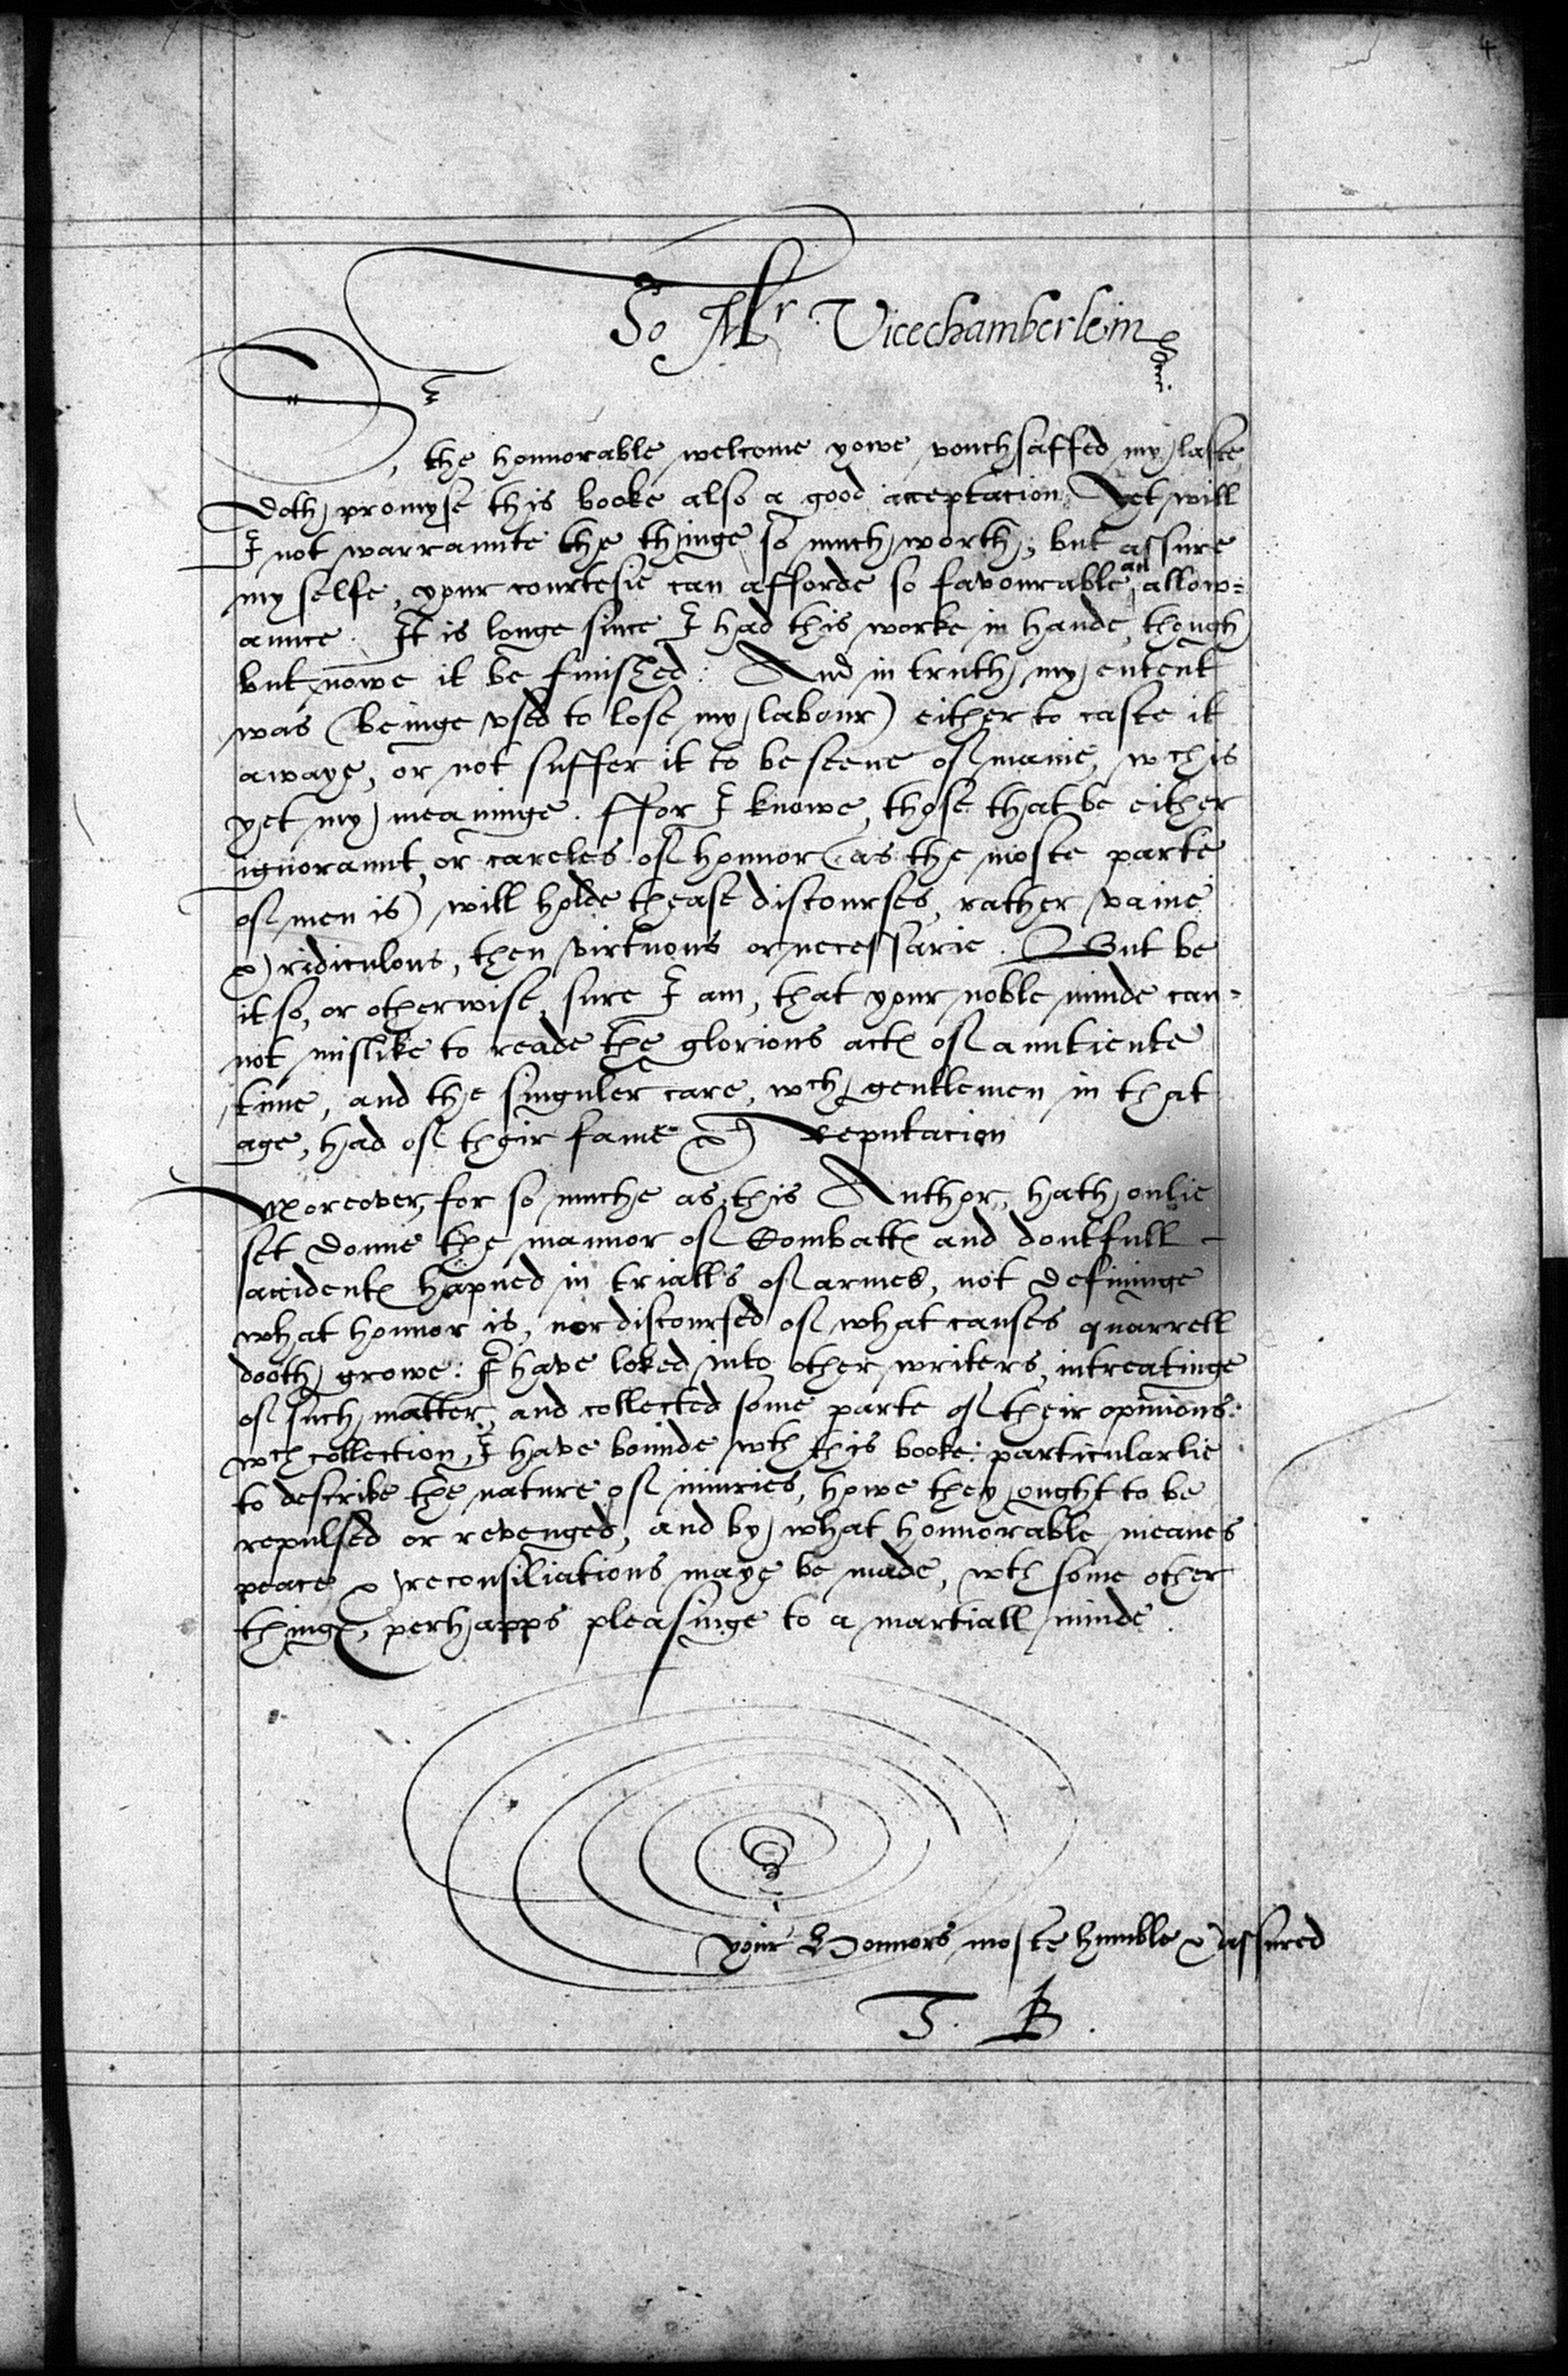 4
To Mr Vicechamberlein
Sr, the honnorable welcome yowe vouchsaffed my laste
doth promyse this booke also a good acceptacion. Yet will
I not warraunte the thinge so much worth; but assure
my selfe, your courtesie can afforde so favourable an allow=
aunce. It is longe since I had this worke in hande, though
but nowe it be finished: And in truth my entent
was (beinge vsed to lose my labour) either to caste it
awaye, or not suffer it to be seene of manie, wch is
yet my meaninge. ffor I knowe, those that be either
ignoraunt, or careles of honnor (as the moste parte
of men is) will holde thease discourses, rather vaine
& ridiculous, then virtuous or necessarie. But be
it so, or otherwise, sure I am, that your noble minde can=
not mislike to reade the glorious actes of auntiente
time, and the singuler care, wch gentlemen in that
age, had of their fame & reputacion
Moreover, for so muche as this Author, hath onlie
set downe the mannor of Combattes and doutfull
accidentes hapned in trialls of armes, not defininge
what honnor is, nor discoursed of what causes quarrell
dooth growe: I have loked into other writers, intreatinge
of such matter, and collected some parte of their opinions:
wch collection, I have bounde wth this booke: particularlie
to describe the nature of iniuries, howe they ought to be
repulsed or revenged, and by what honnorable meanes
peace & reconsiliations maye be made, wth some other
thinges, perhapps pleasinge to a martiall minde.
Your Honnors moste humble & assured
T. B.